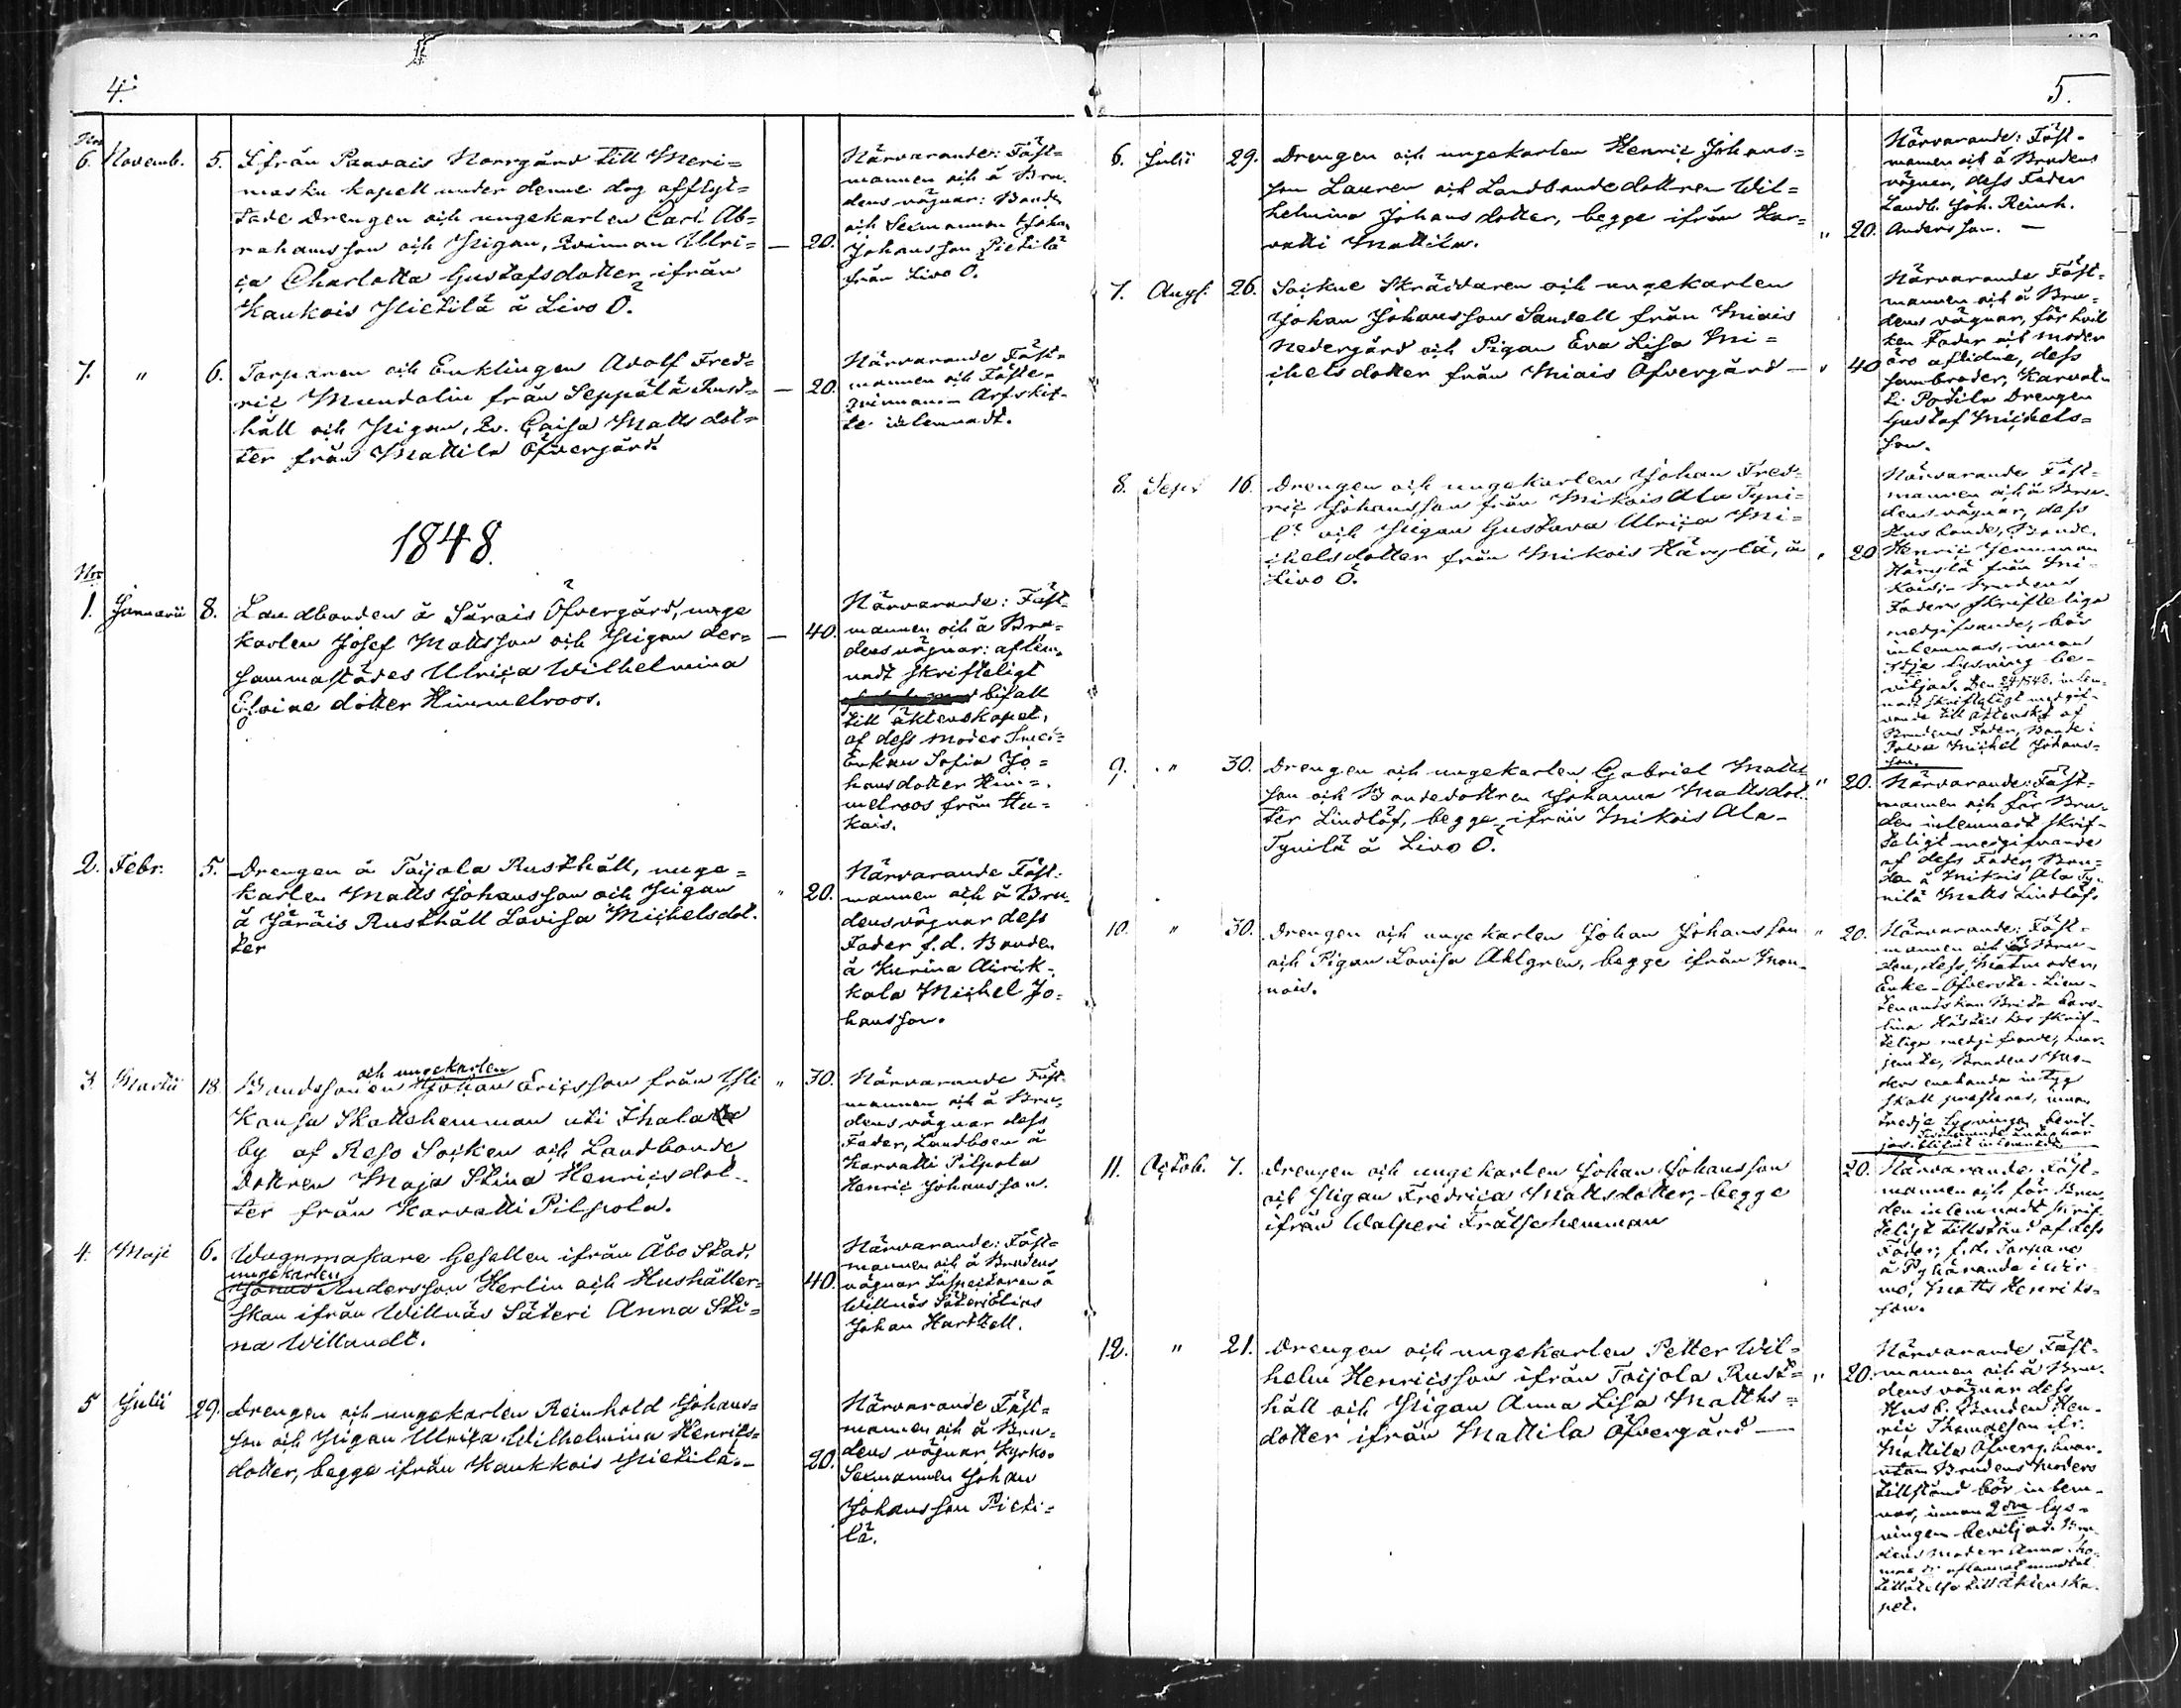 4.
Nro
6. Novemb. 5. Ifrån Paavais Norrgård till Meri=
masku kapell under denne dag afflyt=
tade Drengen och ungekarlen Carl Ab=
rahamsson och Pigan, Qvinnan Ullri= — 20.
ca Charlotta Gustafsdotter ifrån
Kaukois Pietilä å Livo Ö.
Närvarande: Fäst=
mannen och å Bru=
dens vägnar: Bonden
och Sexmannen Johan
Johansson Pietilä
från Livo Ö.
7. " 6. Torparen och Enklingen Adolf Fred=
ric Mundolin från Seppälä Rust= — 20.
håll och Pigan, Qv. Caisa Matts dot=
ter från Mattila Öfvergård.
Närvarande Fäst=
mannen och Fäste=
qvinnan — Arfskif=
te inlemnadt.
1848.
Nro
1. Januarii 8. Landbonden å Särais Öfvergård, unge
karlen Josef Mattsson och Pigan der= — 40.
sammastädes Ulrica Wilhelmina
Efraime dotter Himmelroos.
Närvarande: Fäst=
mannen och å Bru=
dens vägnar: aflem=
nadt skrifteligt
bifall
till äktenskapet,
af dess moder
Enkan Sofia Jo=
hans dotter Him=
melroos från Ha=
kais.
2. Febr. 5. Drengen å Taipola Rusthåll, unge=
karlen Matts Johansson och Pigan " 20.
å Järäis Rusthåll Lovisa Michelsdot=
ter
Närvarande Fäst=
mannen och å Bru=
dens vägnar dess
Fader f.d. Bonden
å Kurina Airik=
kala Michel Jo=
hansson.
och ungekarlen
3. Martii 18. Bondsonen Johan Ericsson från Yli " 30.
Kansa Skattehemman uti Ihala
by af Reso Socken och Landbonde
Dottren Maja Stina Henricsdot=
ter från Karvatti Pilpola.
Närvarande Fäst=
mannen och å Bru=
dens vägnar dess
Fader, Landboen å
Karvatti Pilpola
Henric Johansson.
4. Maji 6. Wagnmakare Gesellen ifrån Åbo Stad,
ungekarlen
Jonas Andersson Herlin och Hushåller= 40.
skan ifrån Willnäs Säteri Anna Sti=
na Willandt.
Närvarande: Fäst=
mannen och å Brudens
vägnar Inspectoren å
Willnäs Säteri Elias
Johan Hartzell.
5 Julii 29. Drengen och ungekarlen Reinhold Johans=
son och Pigan Ulrica Wilhelmina Henrics=
dotter, begge ifrån Kaukkois Pietilä. — 20.
Närvarande Fäst=
mannen och å Bru=
dens vägnar Kyrko=
Sexmannen Johan
Johansson Pieti=
lä.
5.
6. Julii 29. Drengen och ungekarlen Henric Johans=
son Lauren och Landbonde dottren Wil=
helmina Johans dotter, begge ifrån Kar= " 20.
vatti Mattila.
Närvarande: Fäst=
mannen och å Brudens
vägnar, dess Fader
Landb. Joh. Reinh.
Andersson. —
7. Aug. 26. Sockne Skräddaren och ungekarlen
Johan Johansson Sandell från Miais
Nedergård och Pigan Eva Lisa Mi=
chelsdotter från Miais Öfvergård — " 40
Närvarande Fäst=
mannen och å Bru=
dens vägnar, för hvil
ken Fader och moder
äro aflidne, dess
hambroder, Karvat=
ti Potila Drengen
Gustaf Michels=
son.
8. Sept 16. Drengen och ungekarlen Johan Fred=
ric Johansson från Mikois Ala Tyni=
lä och Pigan Gustava Ulrica Mi=
chelsdotter från Mikois Härylä, å " 20
Livo Ö.
Närvarande Fäst=
mannen och å Bru=
dens vägnar, dess
Husbonde, Bonde.
Henric Henriman
Härylä från Mi=
kois, — Brudens
Faders skrifteliga
medgifvande, bör
inlemnas, innan
3dje lysning be=
viljas. Den 1848. inlem=
nadt skrifteligt medgif=
vande till äktenskp af
Brudens Fader, Bonde i
Michel Johans=
son.
9. " 30. Drengen och ungekarlen Gabriel Matts=
son och Bondedottren Johanna Mattsdot= " 20.
ter Lindlöf, begge ifrån Mikois Ala-
Tynilä å Livo Ö.
Närvarande: Fäst=
mannen och för Bru=
den inlemnadt skrif=
teligt medgifvande
af dess Fader, Bon=
den å Mikois Ala Ty=
nilä Matts Lindlöf.
10. " 30. Drengen och ungekarlen Johan Johansson " 20.
och Pigan Lovisa Ahlgren, begge ifrån Mon=
nois.
Närvarande: Fäst=
mannen och Bru=
den, dess Matmoder,
Enke-Öfverste-Lieu=
tenantskan Brita Caro=
lina skrif=
teliga medgifvande, hvar=
jemte, Brudens Mo=
der enahanda intyg
skall presteras, innan
tredje Lysningen bevil=
jas.
blifvit inlemnadt
11. Octob. 7. Drengen och ungekarlen Johan Johansson 20.
och Pigan Fredrica Mattsdotter, begge
ifrån Walperi Frälsehemman
Närvarande Fäst=
mannen och för Bru=
den inlemnadt skrif=
teligt tillstånd af dess
Fader, f.d. Torparen
å Pyhäranda i Wir=
mo, Matts Henrics=
son.
12. " 21. Drengen och ungekarlen Petter Wil=
helm Henricsson ifrån Taipola Rust= " 20.
håll och Pigan Anna Lisa Matths=
dotter ifrån Mattila Öfvergård —
Närvarande Fäst=
mannen och å Bru=
dens vägnar dess
Husb. Bonden Hen=
ric Thomasson ifr.
Mattila Öfverg. hvar=
utom Brudens moders
tillstånd bör inlem=
nas, innan 2dra lys=
ningen beviljas. Bru=
dens moder Anna
aflemnat mundtl.
tillåtelse till äktenska=
pet.